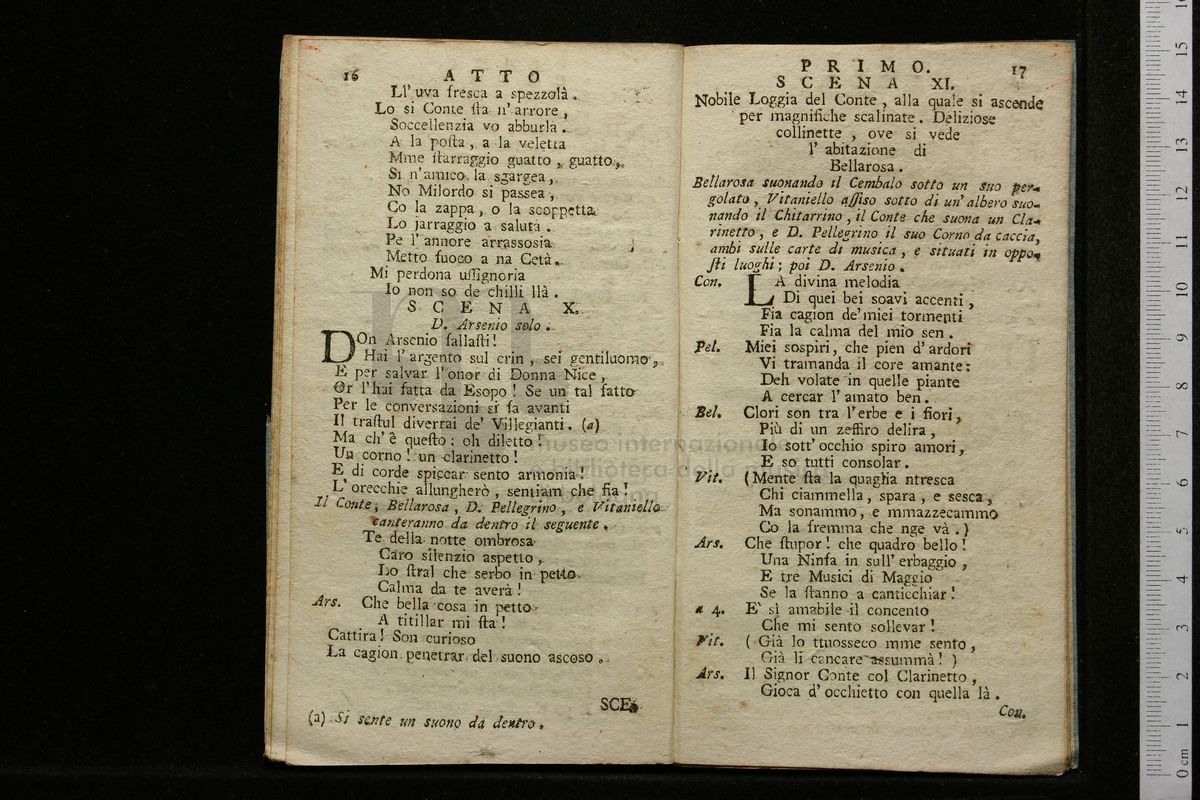 16 ATTO
Ll' uva fresca a spezzolà.
Lo si Conte sta n' arrore,
Soccellenzia vo abburla.
A la posta, a la veletta
Mme starraggio guatto, guatto,
Si n'amico la sgargea,
No Milordo si passea,
Co la zappa, o la scoppetta
Lo jarraggio a salutà.
Pe l'annore arrassosia
Metto fuoco a na Cetà.
Mi perdona ussignoria
Io non so de chilli llà.
SCENA X.
D. Arsenio solo.
DOn Arsenio fallasti!
Hai l'argento sul crin, sei gentiluomo,
E per salvar l'onor di Donna Nice,
Or l'hai fatta da Esopo! Se un tal fatto
Per le conversazioni si fa avanti
Il trastul diverrai de' Villegianti. (a)
Ma ch'è questo: oh diletto!
Un corno! un clarinetto!
E di corde spiccar sento armonia!
L'orecchie allungherò, sentiam che fia!
Il Conte, Bellarosa, D. Pellegrino, e Vitaniello
canteranno da dentro il seguente.
Te della notte ombrosa
Caro silenzio aspetto,
Lo stral che serbo in petto
Calma da te averà!
Ars. Che bella cosa in petto
A titillar mi sta!
Cattira! Son curioso
La cagion penetrar del suono ascoso.
SCE-
(a) Si sente un suono da dentro.
PRIMO. 17
SCENA XI.
Nobile Loggia del Conte, alla quale si ascende
per magnifiche scalinate. Deliziose
collinette, ove si vede
l'abitazione di
Bellarosa.
Bellarosa suonando il Cembalo sotto un suo per-
golato, Vitaniello assiso sotto di un'albero suo-
nando il Chitarrino, il Conte che suona un Cla-
rinetto, e D. Pellegrino il suo Corno da caccia,
ambi sulle carte di musica, e situati in oppo-
sti luoghi; poi D. Arsenio.
Con. LA divina melodia
Di quei bei soavi accenti,
Fia cagion de'miei tormenti
Fia la calma del mio sen.
Pel. Miei sospiri, che pien d'ardori
Vi tramanda il core amante:
Deh volate in quelle piante
A cercar l'amato ben.
Bel. Clori son tra l'erbe e i fiori,
Più di un zeffiro delira,
Io sott'occhio spiro amori,
E so tutti consolar.
Vit. (Mente sta la quaglia ntresca
Chi ciammella, spara, e sesca,
Ma sonammo, e mmazzecammo
Co la fremma che nge và.)
Ars. Che stupor! che quadro bello!
Una Ninfa in sull'erbaggio,
E tre Musici di Maggio
Se la stanno a canticchiar!
a 4. E' sì amabile il concento
Che mi sento sollevar!
Vit. (Già lo ttuosseco mme sento,
Già li cancare assummà!)
Ars. Il Signor Conte col Clarinetto,
Gioca d'occhietto con quella là.
Con.